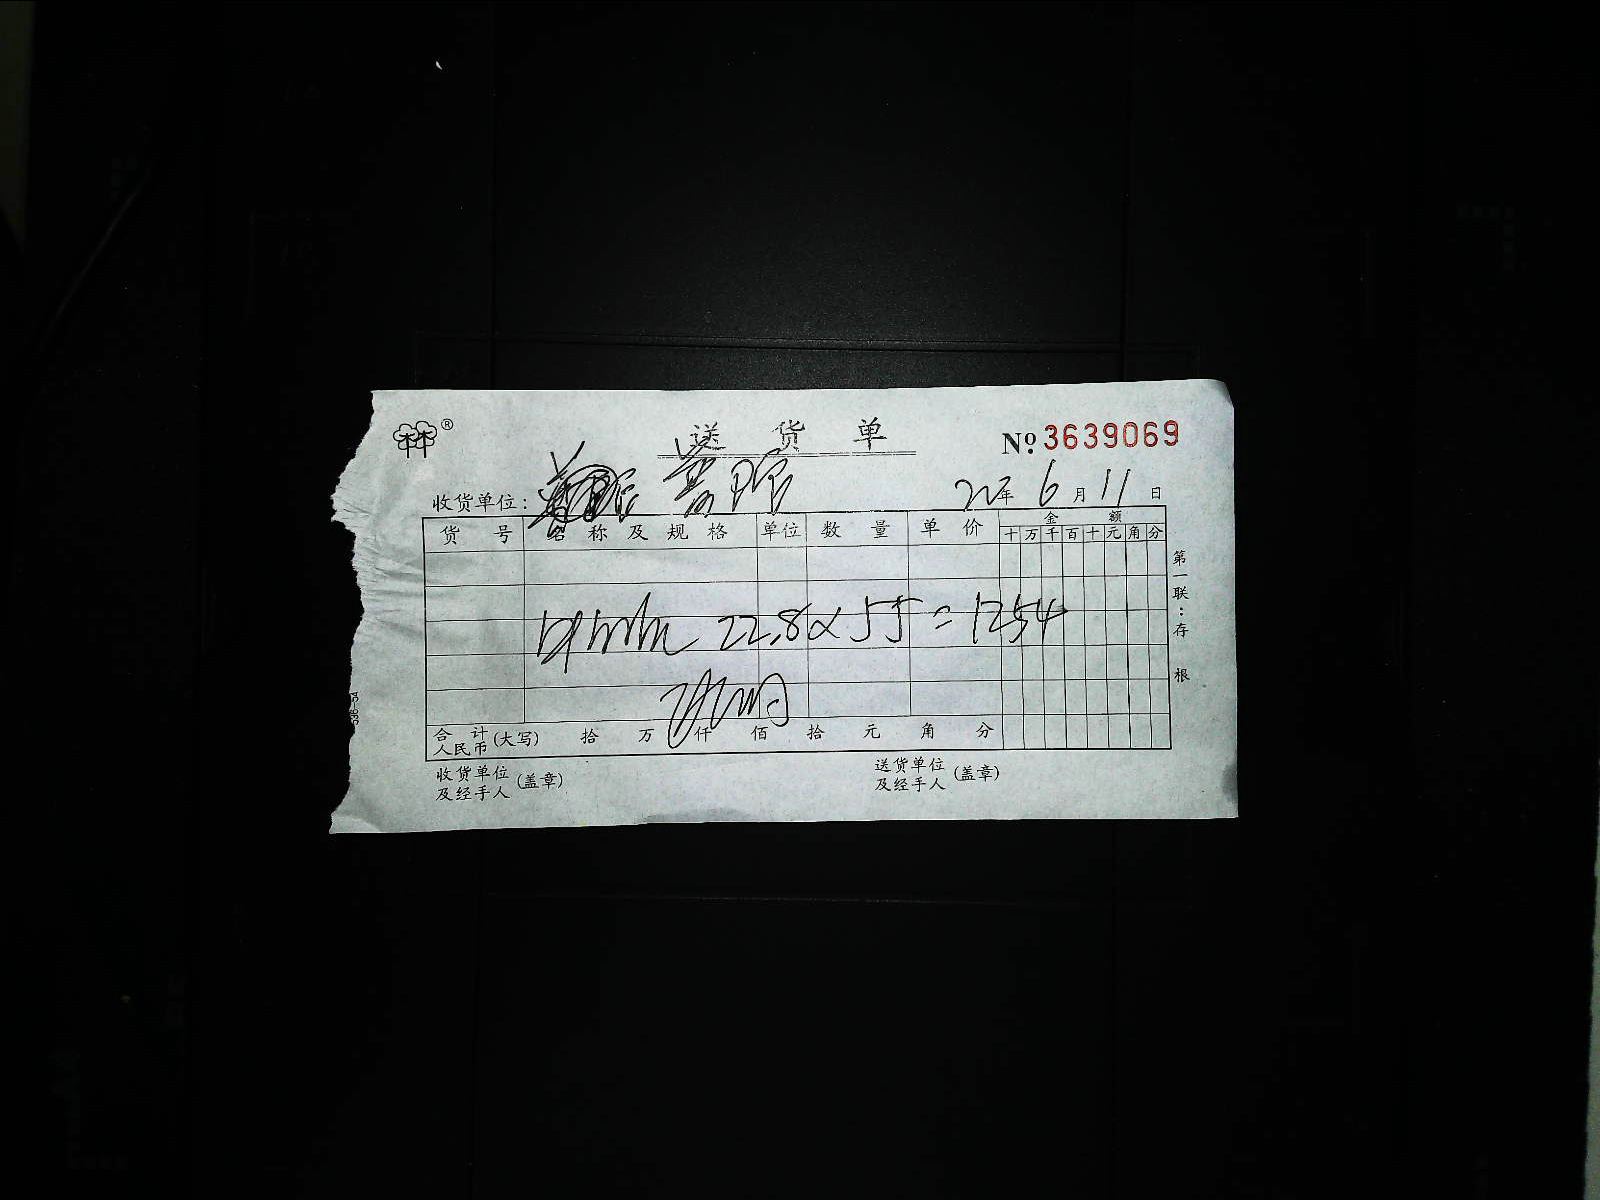 ®
送货单
№ 3639069
收货单位：
年 6 月 11 日
货号 名称及规格 单位 数量 单价 金额
十 万 千 百 十 元 角 分
22.8×55=1254
合计
人民币(大写) 拾 万 仟 佰 拾 元 角 分
收货单位
及经手人(盖章)
送货单位
及经手人(盖章)
第一联：存根